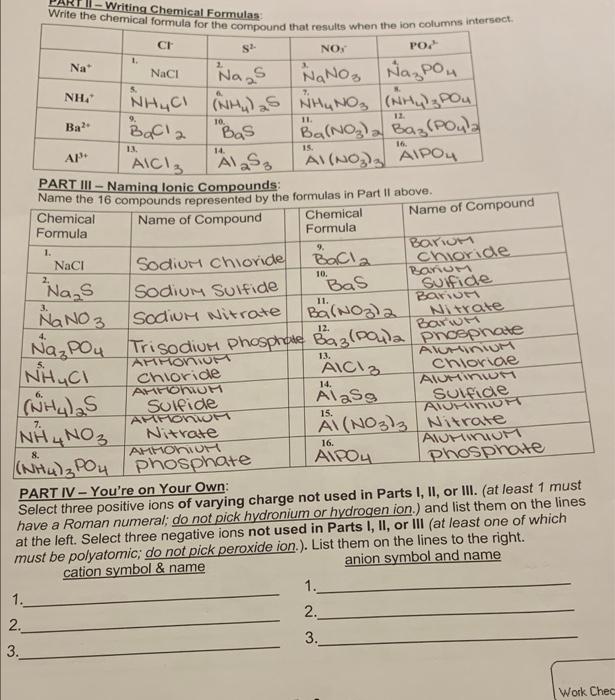 PART II – Writing Chemical Formulas:
Write the chemical formula for the compound that results when the ion columns intersect.
Cl⁻ S²⁻ NO₃⁻ PO₄³⁻
Na⁺ 1. NaCl 2. Na₂S 3. NaNO₃ 4. Na₃PO₄
NH₄⁺ 5. NH₄Cl 6. (NH₄)₂S 7. NH₄NO₃ 8. (NH₄)₃PO₄
Ba²⁺ 9. BaCl₂ 10. BaS 11. Ba(NO₃)₂ 12. Ba₃(PO₄)₂
Al³⁺ 13. AlCl₃ 14. Al₂S₃ 15. Al(NO₃)₃ 16. AlPO₄
PART III – Naming Ionic Compounds:
Name the 16 compounds represented by the formulas in Part II above.
Chemical Formula Name of Compound Chemical Formula Name of Compound
1. NaCl Sodium Chloride 9. BaCl₂ Barium chloride
2. Na₂S Sodium Sulfide 10. BaS Barium sulfide
3. NaNO₃ Sodium Nitrate 11. Ba(NO₃)₂ Barium Nitrate
4. Na₃PO₄ Trisodium Phosphate 12. Ba₃(PO₄)₂ Barium phosphate
5. NH₄Cl Ammonium chloride 13. AlCl₃ Aluminium chloride
6. (NH₄)₂S Ammonium Sulfide 14. Al₂S₃ Aluminium sulfide
7. NH₄NO₃ Ammonium Nitrate 15. Al(NO₃)₃ Aluminium Nitrate
8. (NH₄)₃PO₄ Ammonium phosphate 16. AlPO₄ Aluminium phosphate
PART IV – You're on Your Own:
Select three positive ions of varying charge not used in Parts I, II, or III. (at least 1 must
have a Roman numeral; do not pick hydronium or hydrogen ion.) and list them on the lines
at the left. Select three negative ions not used in Parts I, II, or III (at least one of which
must be polyatomic; do not pick peroxide ion.). List them on the lines to the right.
cation symbol & name anion symbol and name
1. 1.
2. 2.
3. 3.
Work